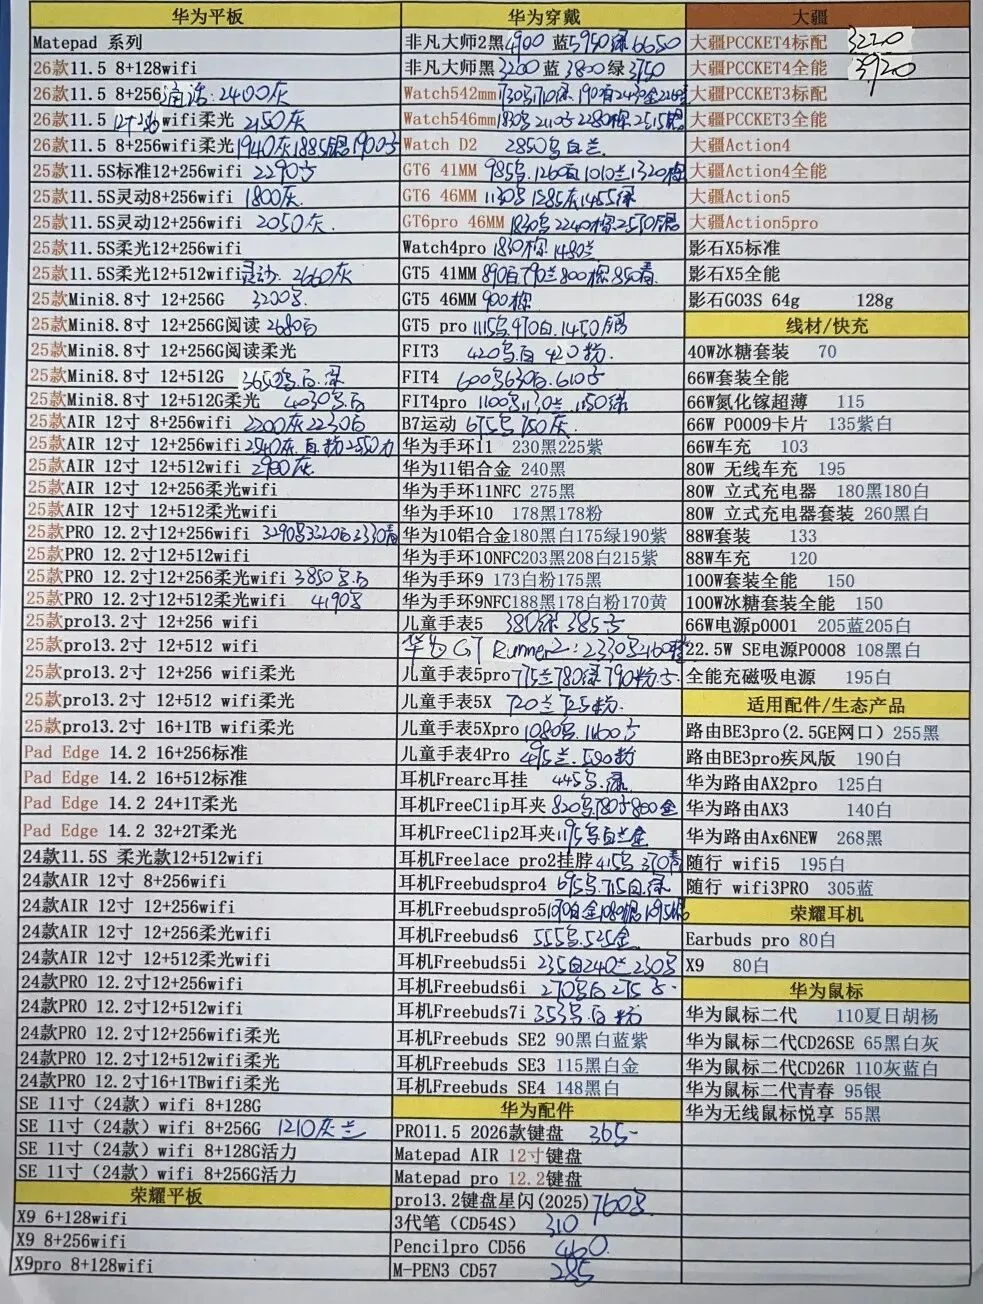 华为平板
Matepad 系列
26款11.5 8+128wifi
26款11.5 8+256通话:2400灰
26款11.5 12+256wifi柔光 2150灰
26款11.5 8+256wifi柔光1940灰1885银1900
25款11.5S标准12+256wifi 2290
25款11.5S灵动8+256wifi 1800灰
25款11.5S灵动12+256wifi 2050灰.
25款11.5S柔光12+256wifi
25款11.5S柔光12+512wifi灵动. 2660灰
25款Mini8.8寸 12+256G 3200
25款Mini8.8寸 12+256G阅读 2680白
25款Mini8.8寸 12+256G阅读柔光
25款Mini8.8寸 12+512G 3650
25款Mini8.8寸 12+512G柔光 4030
25款AIR 12寸 8+256wifi 2200灰2230白
25款AIR 12寸 12+256wifi 2540灰.白.粉2550
25款AIR 12寸 12+512wifi 2980灰
25款AIR 12寸 12+256柔光wifi
25款AIR 12寸 12+512柔光wifi
25款PRO 12.2寸12+256wifi 3290 3320白3330青
25款PRO 12.2寸12+512wifi
25款PRO 12.2寸12+256柔光wifi 3850
25款PRO 12.2寸12+512柔光wifi 4190
25款pro13.2寸12+256 wifi
25款pro13.2寸12+512 wifi
25款pro13.2寸 12+256 wifi柔光
25款pro13.2寸 12+512 wifi柔光
25款pro13.2寸 16+1TB wifi柔光
Pad Edge 14.2 16+256标准
Pad Edge 14.2 16+512标准
Pad Edge 14.2 24+1T柔光
Pad Edge 14.2 32+2T柔光
24款11.5S 柔光款12+512wifi
24款AIR 12寸 8+256wifi
24款AIR 12寸 12+256wifi
24款AIR 12寸 12+256柔光wifi
24款AIR 12寸 12+512柔光wifi
24款PRO 12.2寸12+256wifi
24款PRO 12.2寸12+512wifi
24款PRO 12.2寸12+256wifi柔光
24款PRO 12.2寸12+512wifi柔光
24款PRO 12.2寸16+1TBwifi柔光
SE 11寸（24款）wifi 8+128G
SE 11寸（24款）wifi 8+256G 1210灰兰
SE 11寸（24款）wifi 8+128G活力
SE 11寸（24款）wifi 8+256G活力
荣耀平板
X9 6+128wifi
X9 8+256wifi
X9pro 8+128wifi
华为穿戴
非凡大师2黑4900 蓝5950绿6650
非凡大师黑3200蓝3800绿3750
Watch542mm
Watch546mm
Watch D2 2850
GT6 41MM 985 1260白1010兰1320棕
GT6 46MM 1130 1285灰1455绿
GT6pro 46MM 1830 2240棕2550银
Watch4pro 1830棕1480兰
GT5 41MM 890白790兰800棕850青
GT5 46MM 900棕
GT5 pro 1115 970白.1450银
FIT3 420 白 420粉.
FIT4 600 630白.610
FIT4pro 1100 1130兰 1150绿
B7运动 675 750灰.
华为手环11 230黑225紫
华为11铝合金 240黑
华为手环11NFC 275黑
华为手环10 178黑178粉
华为10铝合金180黑白175绿190紫
华为手环10NFC203黑208白215紫
华为手环9 173白粉175黑
华为手环9NFC188黑178白粉170黄
儿童手表5 380绿 385
华为GT Runner2:2330
儿童手表5pro715兰780绿790粉
儿童手表5X 720兰725粉.
儿童手表5Xpro1080 1160
儿童手表4Pro 495兰.500粉
耳机Frearc耳挂 445 绿
耳机FreeClip耳夹820 780 800金
耳机FreeClip2耳夹1195 白兰金
耳机Freelace pro2挂脖415 370青
耳机Freebudspro4 695 715白.绿
耳机Freebudspro51090白金1080银1095
耳机Freebuds6 555 525金
耳机Freebuds5i 235白240兰230
耳机Freebuds6i 270 白 275
耳机Freebuds7i 353 白 粉
耳机Freebuds SE2 90黑白蓝紫
耳机Freebuds SE3 115黑白金
耳机Freebuds SE4 148黑白
华为配件
PRO11.5 2026款键盘 365-
Matepad AIR 12寸键盘
Matepad pro 12.2键盘
pro13.2键盘星闪(2025)760
3代笔（CD54S） 310
Pencilpro CD56 460.
M-PEN3 CD57 285
大疆
大疆PCCKET4标配 3220
大疆PCCKET4全能 3920
大疆PCCKET3标配
大疆PCCKET3全能
大疆Action4
大疆Action4全能
大疆Action5
大疆Action5pro
影石X5标准
影石X5全能
影石GO3S 64g 128g
线材/快充
40W冰糖套装 70
66W套装全能
66W氮化镓超薄 115
66W P0009卡片 135紫白
66W车充 103
80W 无线车充 195
80W 立式充电器 180黑180白
80W 立式充电器套装 260黑白
88W套装 133
88W车充 120
100W套装全能 150
100W冰糖套装全能 150
66W电源p0001 205蓝205白
22.5W SE电源P0008 108黑白
全能充磁吸电源 195白
适用配件/生态产品
路由BE3pro(2.5GE网口) 255黑
路由BE3pro疾风版 190白
华为路由AX2pro 125白
华为路由AX3 140白
华为路由Ax6NEW 268黑
随行 wifi5 195白
随行 wifi3PRO 305蓝
荣耀耳机
Earbuds pro 80白
X9 80白
华为鼠标
华为鼠标二代 110夏日胡杨
华为鼠标二代CD26SE 65黑白灰
华为鼠标二代CD26R 110灰蓝白
华为鼠标二代青春 95银
华为无线鼠标悦享 55黑